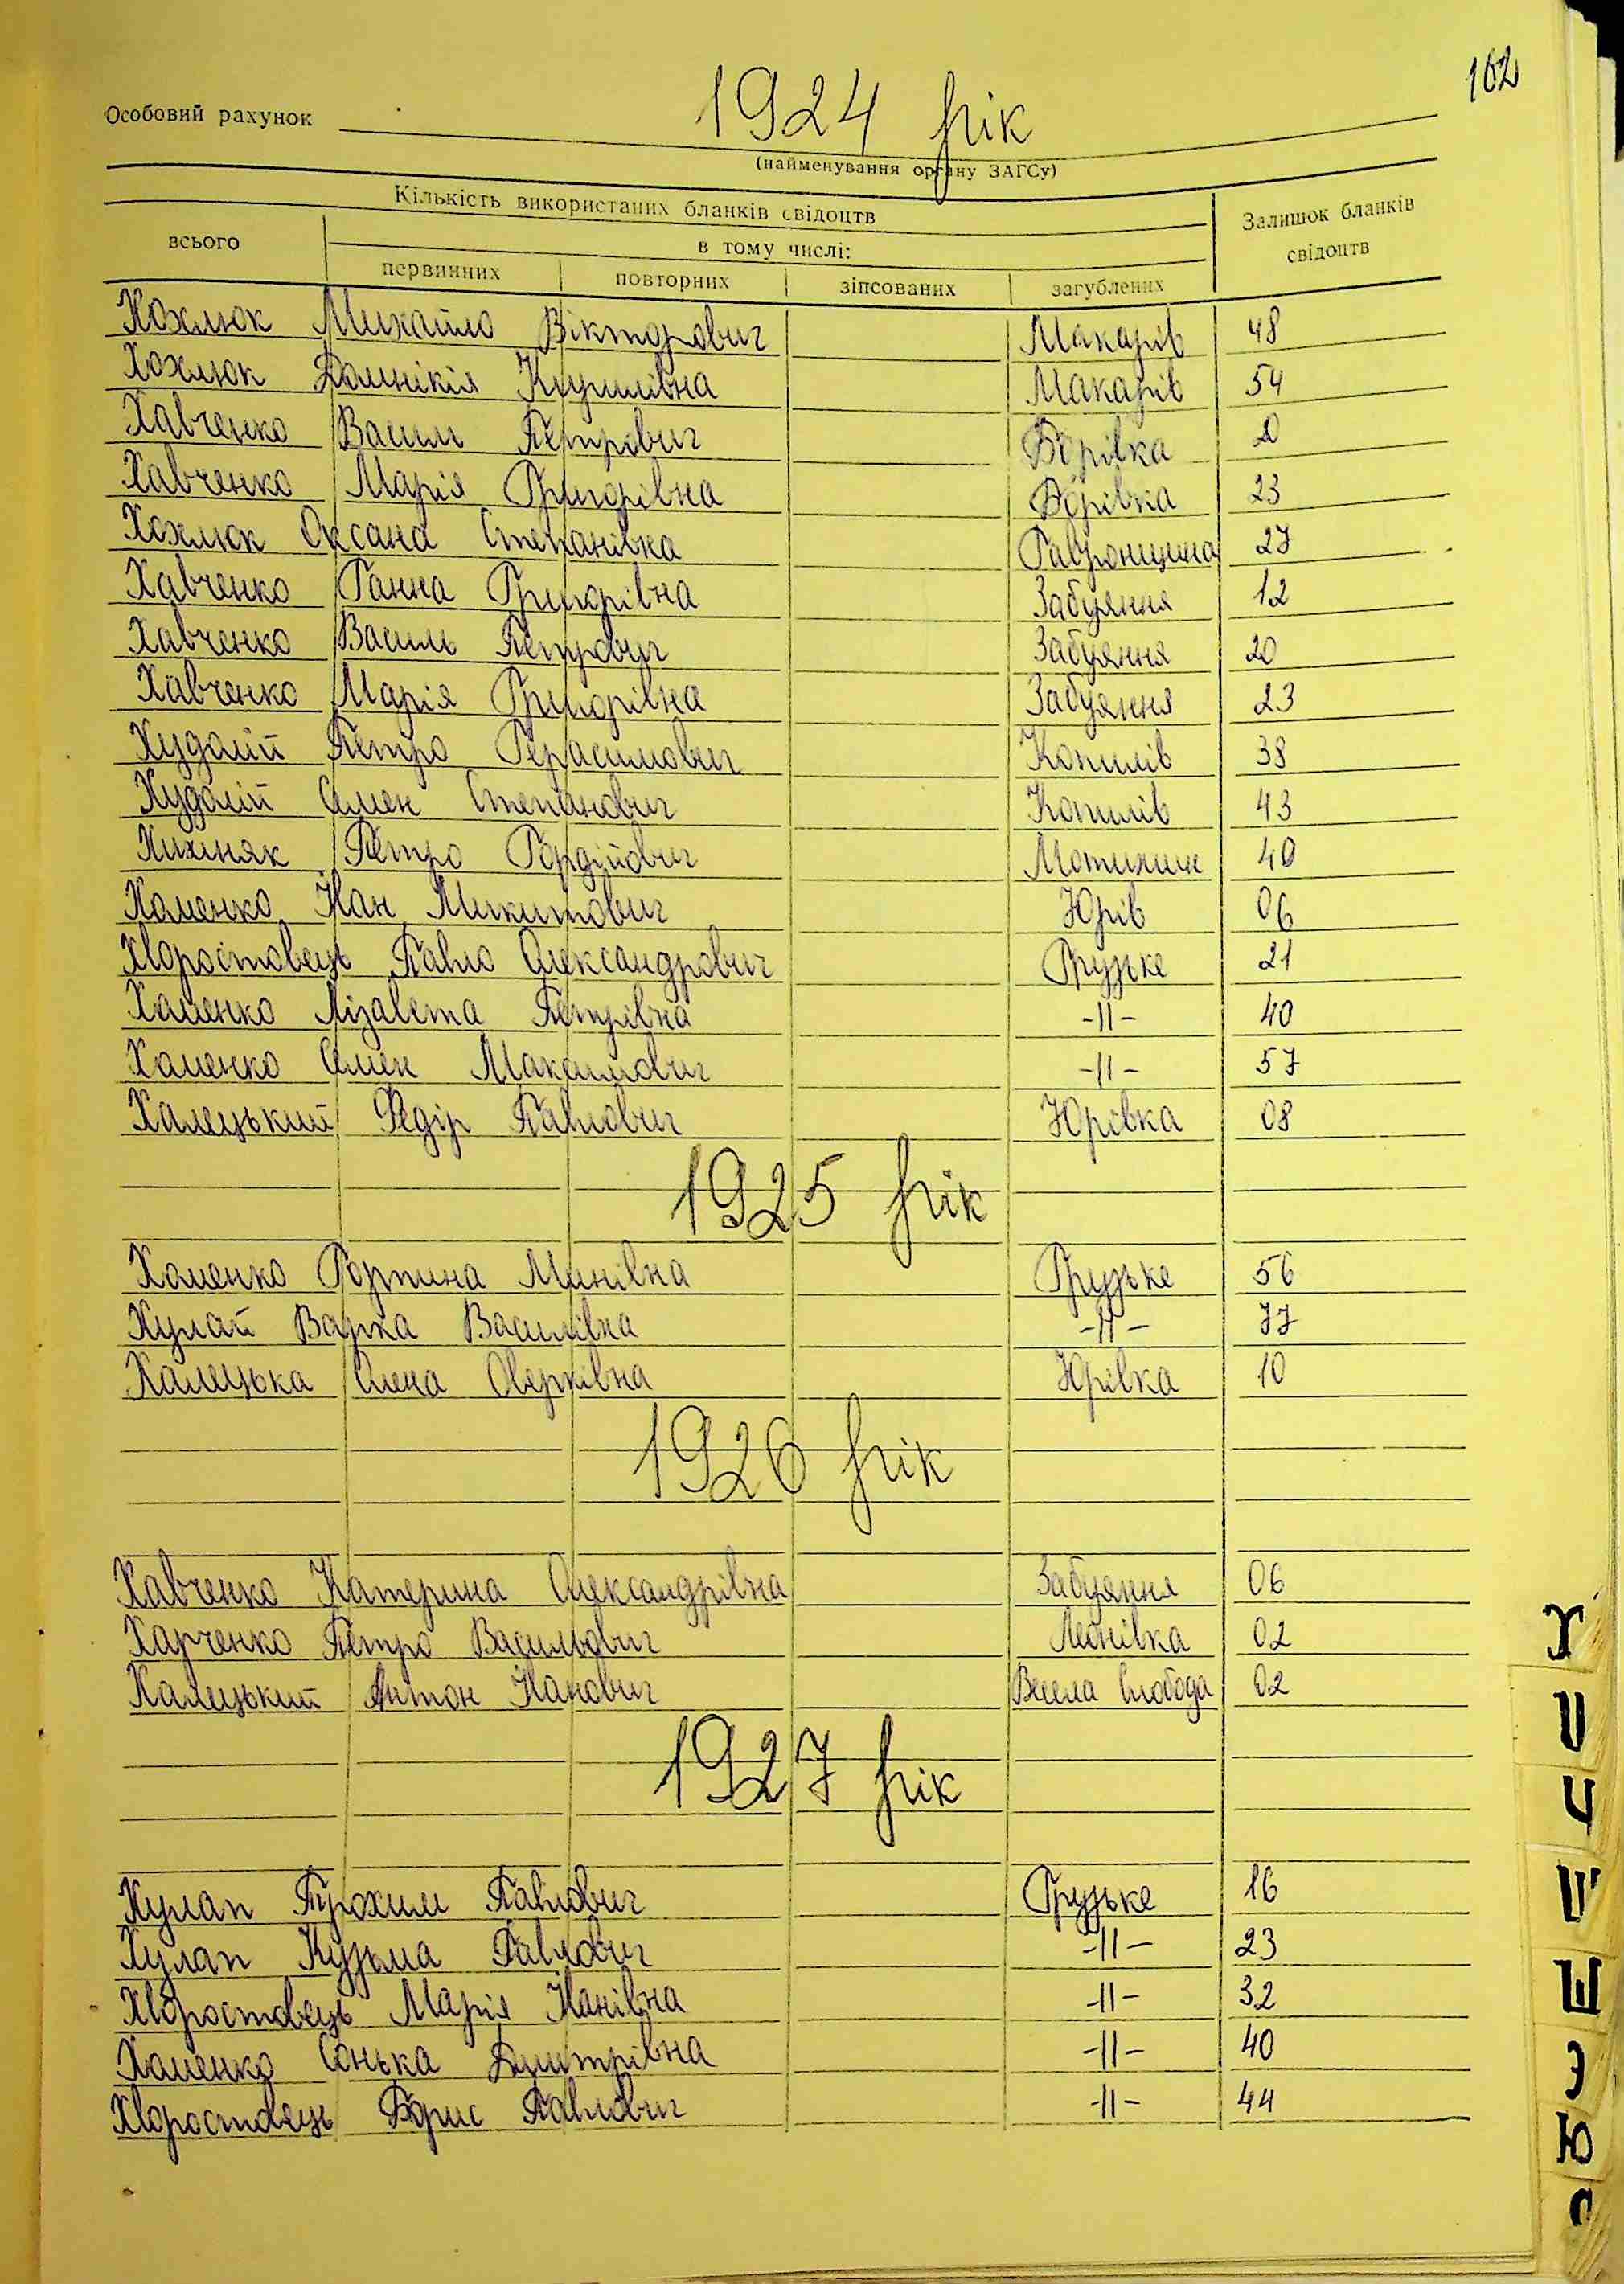 102
Особовий рахунок 1924 рік
(найменування органу ЗАГСу)
Кількість використаних бланків свідоцтв
Залишок бланків свідоцтв
всього
в тому числі:
первинних повторних зіпсованих загублених
Хохлюк Михайло Вікторович Макарів 48
Хохлюк Домнікія Кирилівна Макарів 54
Хавченко Василь Петрович Борівка 20
Хавченко Марія Григорівна Борівка 23
Хохлюк Оксана Степанівна Гавронщина 27
Хавченко Ганна Григорівна Забуяння 12
Хавченко Василь Петрович Забуяння 20
Хавченко Марія Григорівна Забуяння 23
Худолій Петро Герасимович Копилів 38
Худолій Семен Степанович Копилів 43
Хижняк Петро Гордійович Мотижин 40
Хоменко Іван Микитович Юрів 06
Хворостовець Павло Олександрович Грузьке 21
Хоменко Лізавета Петрівна -||- 40
Хоменко Семен Максимович -||- 57
Халецький Федір Павлович Юрівка 08
1925 рік
Хоменко Горпина Минівна Грузьке 56
Хулап Варка Василівна -||- 77
Халецька Олена Оверківна Юрівка 10
1926 рік
Хавченко Катерина Олександрівна Забуяння 06
Харченко Петро Васильович Леонівка 02
Халецький Антон Іванович Весела Слобода 02
1927 рік
Хулап Прохим Павлович Грузьке 16
Хулап Кузьма Павлович -||- 23
Хворостовець Марія Іванівна -||- 32
Хоменко Сонька Дмитрівна -||- 40
Хворостовець Борис Павлович -||- 44
Х
Ц
Ч
Ш
Щ
Э
Ю
Я